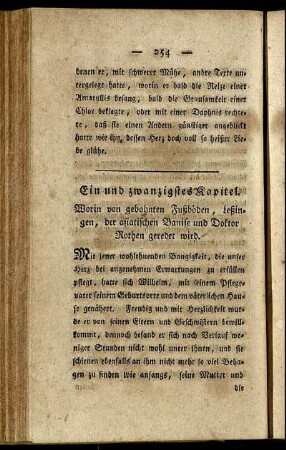 — 254 —
denen er, mit schwerer Mühe, andre Texte un-
tergelegt hatte, worin er bald die Reize einer
Amaryllis besang, bald die Grausamkeit einer
Chloe beklagte, oder mit einer Daphnis rech-
tete, daß sie einen Andern günstiger angeblickt
hatte wie ihn, dessen Herz doch voll so heißer Lie-
be glühe.
Ein und zwanzigstes Kapitel.
Worin von gebohnten Fußböden, Leßin-
gen, der asiatischen Banise und Doktor
Rothen geredet wird.
Mit jener wohlthuenden Bangigkeit, die unser
Herz bei angenehmen Erwartungen zu erfüllen
pflegt, hatte sich Wilhelm, mit seinem Pflege-
vater seinem Geburtsorte und dem väterlichen Hau-
se genähert. Freudig und mit Herzlichkeit wur-
de er von seinen Eltern und Geschwistern bewill-
kommt, dannoch befand er sich nach Verlauf we-
niger Stunden nicht wohl unter ihnen, und sie
schienen ebenfalls an ihm nicht mehr so viel Beha-
gen zu finden wie anfangs, seine Mutter und
die